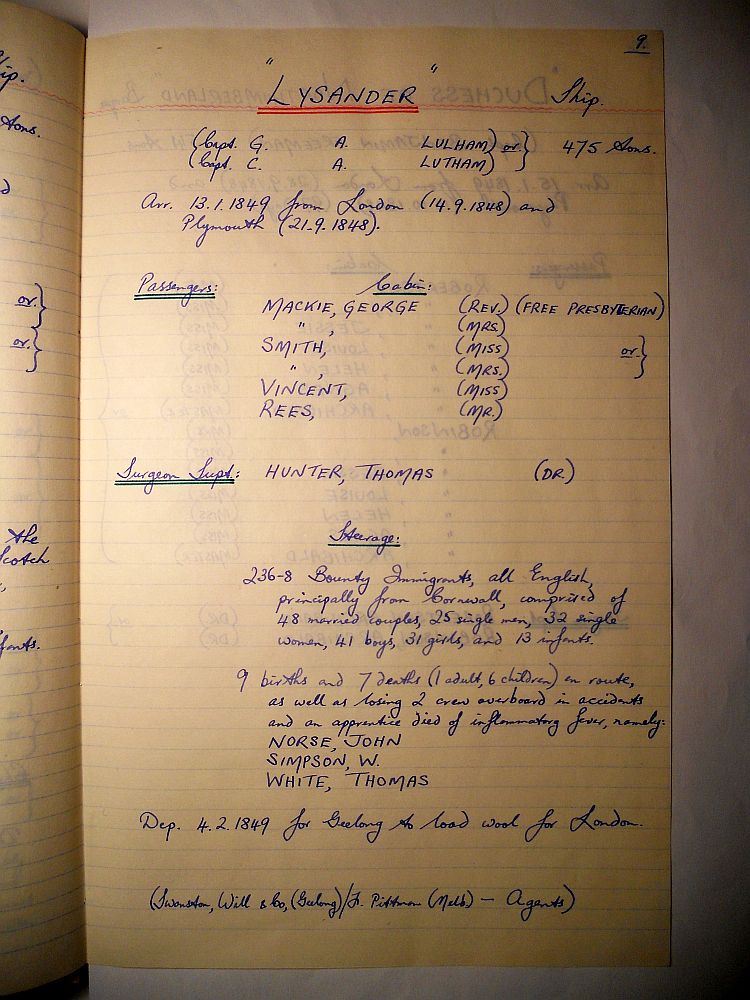 9.
"LYSANDER" Ship.
(Capt. G. A. LULHAM) or } 475 tons.
(Capt. C. A. LUTHAM)
Arr. 13.1.1849 from London (14.9.1848) and
Plymouth (21.9.1848).
Passengers: Cabin:
MACKIE, GEORGE (REV.) (FREE PRESBYTERIAN)
" , (MRS.)
SMITH, (MISS) or }
" , (MRS.)
VINCENT, (MISS)
REES, (MR.)
Surgeon Supt: HUNTER, THOMAS (DR.)
Steerage:
236-8 Bounty Immigrants, all English,
principally from Cornwall, comprised of
48 married couples, 25 single men, 32 single
women, 41 boys, 31 girls, and 13 infants.
9 births and 7 deaths (1 adult, 6 children) en route,
as well as losing 2 crew overboard in accidents
and an apprentice died of inflammatory fever, namely:
NORSE, JOHN
SIMPSON, W.
WHITE, THOMAS
Dep. 4.2.1849 for Geelong to load wool for London.
(Swanston, Will & Co, (Geelong)/F. Pittman (Melb) - Agents)
tons.
or }
or }
the
Scotch